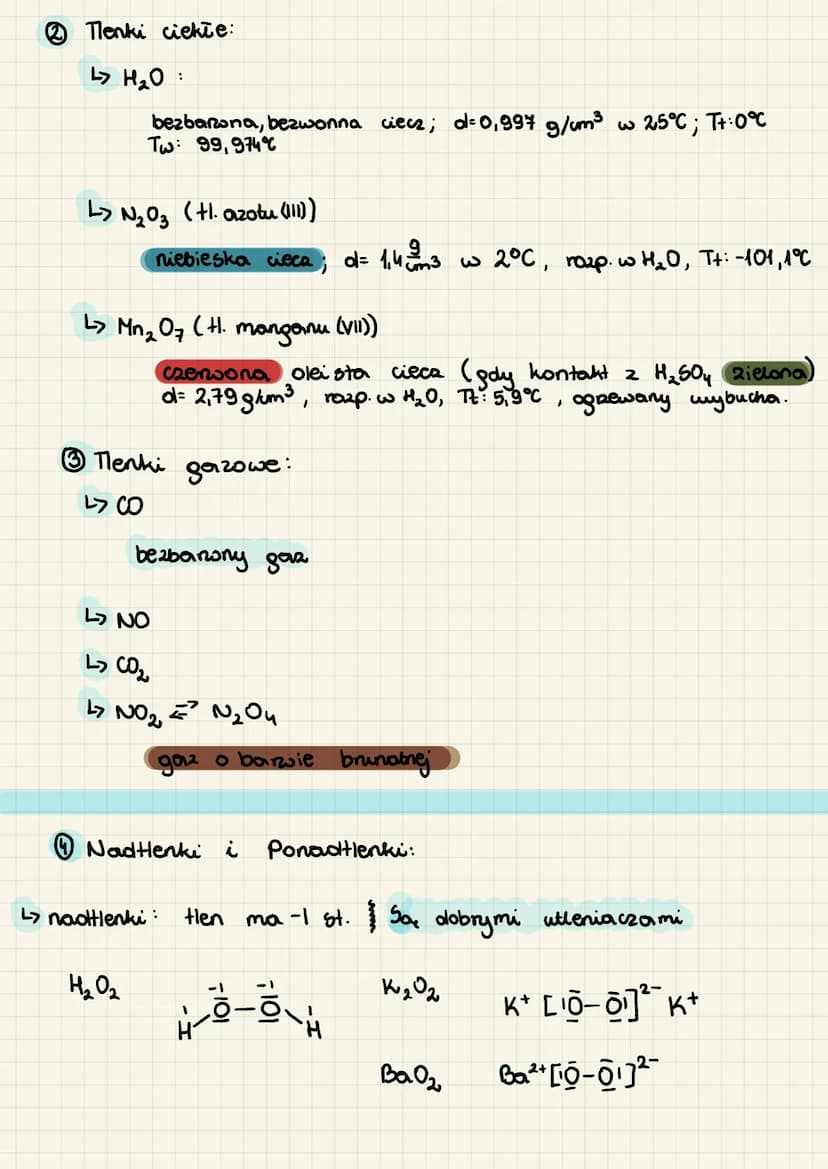 ② Tlenki ciekłe:
↳ H₂O :
bezbarwna, bezwonna ciecz; d=0,997 g/cm³ w 25°C; Tt:0°C
Tw: 99,974°C
↳ N₂O₃ (tl. azotu (III))
niebieska ciecz; d= 1,4 g/cm³ w 2°C, rozp. w H₂O, Tt: -101,1°C
↳ Mn₂O₇ (tl. manganu (VII))
czerwona oleista ciecz (gdy kontakt z H₂SO₄ zielona)
d= 2,79 g/cm³, rozp. w H₂O, Tt: 5,9°C, ogrzewany wybucha.
③ Tlenki gazowe:
↳ CO
bezbarwny gaz
↳ NO
↳ CO₂
↳ NO₂ ⇄ N₂O₄
gaz o barwie brunatnej
④ Nadtlenki i Ponadtlenki:
↳ nadtlenki: tlen ma -I st. } Są dobrymi utleniaczami
H₂O₂ -I -I H-O-O-H K₂O₂ K⁺ [|O̅-O̅|]²⁻ K⁺
BaO₂ Ba²⁺[|O̅-O̅|]²⁻